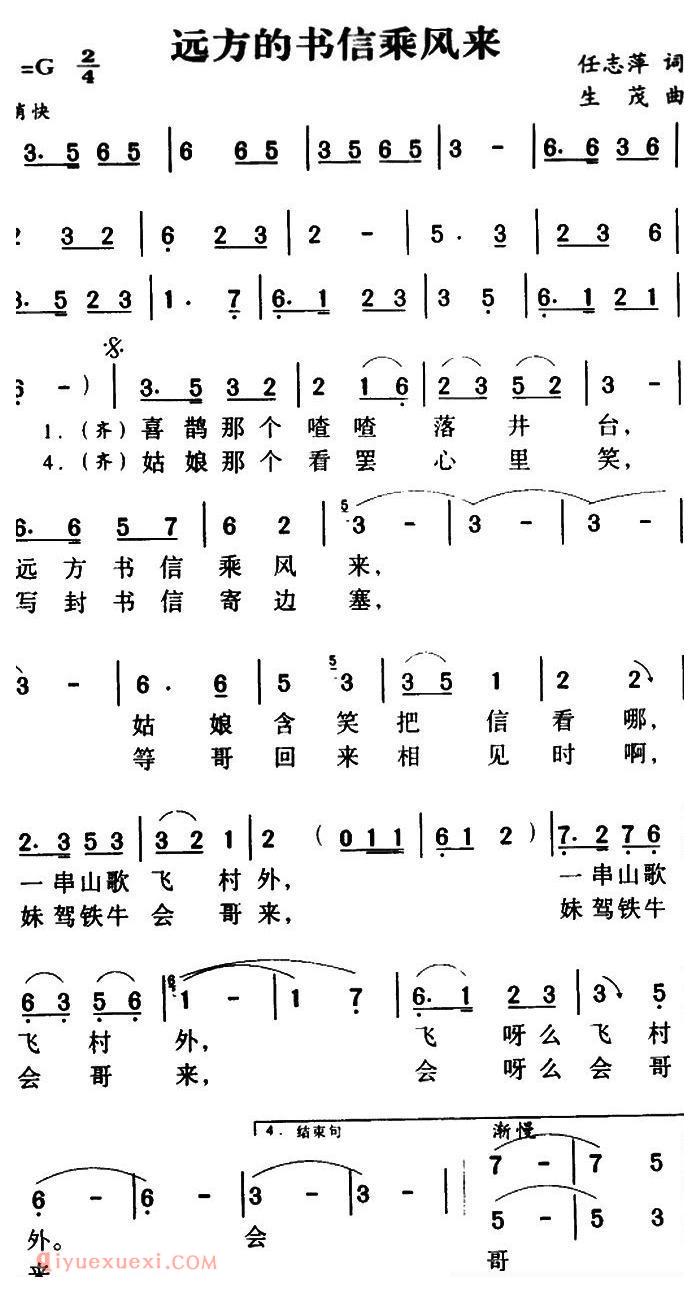 远方的书信乘风来
=G 2/4
任志萍 词
生 茂 曲
快
3. 5 6 5 | 6 6 5 | 3 5 6 5 | 3 - | 6. 6 3 6 |
3 2 | 6 2 3 | 2 - | 5 . 3 | 2 3 6
3. 5 2 3 | 1 . 7 | 6. 1 2 3 | 3 5 | 6. 1 2 1 |
6 - ) | 3. 5 3 2 | 2 1 6 | 2 3 5 2 | 3 - |
1. (齐) 喜鹊那个喳喳 落井台,
4. (齐) 姑娘那个看罢 心里笑,
6. 6 5 7 | 6 2 | 5 3 - | 3 - | 3 - |
远方书信乘风来,
写封书信寄边塞,
3 - | 6 . 6 | 5 5 3 | 3 5 1 | 2 2 |
姑娘含笑把信看哪,
等哥回来相见时啊,
2. 3 5 3 | 3 2 1 | 2 ( | 0 1 1 | 6 1 2 ) | 7. 2 7 6
一串山歌飞村外, 一串山歌
妹驾铁牛会哥来, 妹驾铁牛
6 3 5 6 | 6 1 - | 1 7 | 6. 1 2 3 | 3 5
飞村外, 飞呀么飞村
会哥来, 会呀么会哥
4. 结束句 渐慢
7 - | 7 5
6 - | 6 - | 3 - | 3 - |
5 - | 5 3
外。 会
哥
来
qiyuexuexi.com